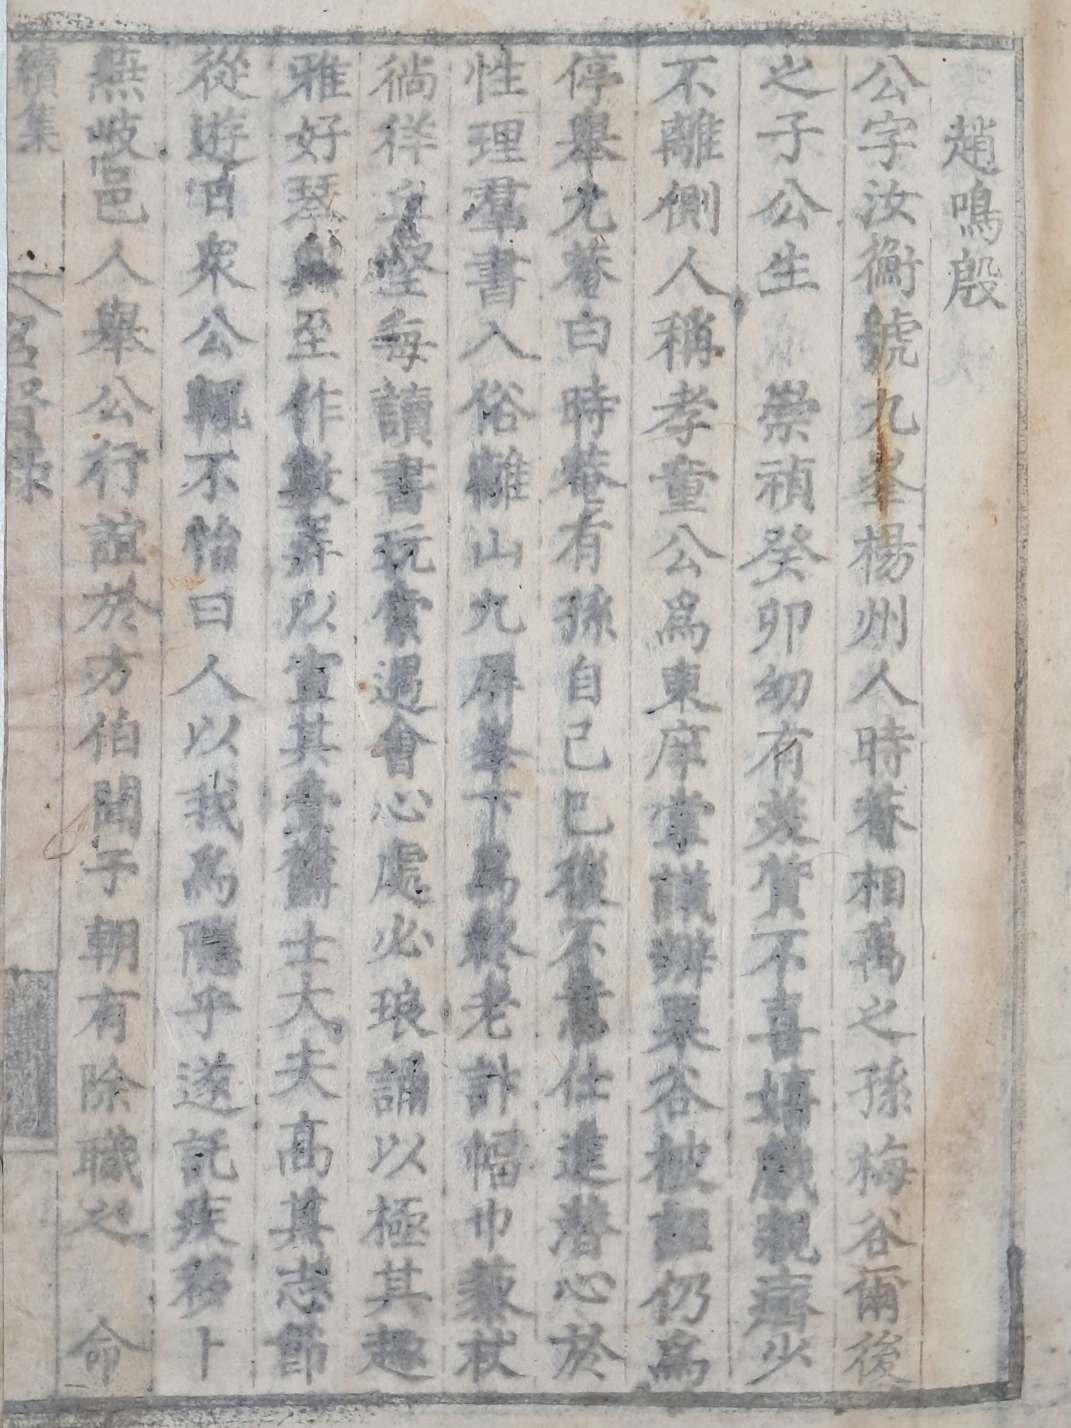 趙鳴殷
公字汝衡號九峯楊州人時菴相禹之孫梅谷爾後
之子公生 崇禎癸卯幼有美質不喜嬉戲親癠少
不離側人稱孝童公爲東庠掌議辨栗谷被誣仍爲
停擧尤菴曰時菴有孫自己巳後不意仕進潛心於
性理羣書入俗離山九屛峯下爲終老計幅巾藜杖
徜徉丘壑每讀書玩索遇會心處必琅誦以極其趣
雅好琴無至作數弄以宣其壹鬱士大夫高其志節
從遊者衆公輒不怡曰人以我爲隱乎遂託疾移卜
燕岐邑人擧公行誼於方伯聞于朝有除職之 命
續集 名賢錄